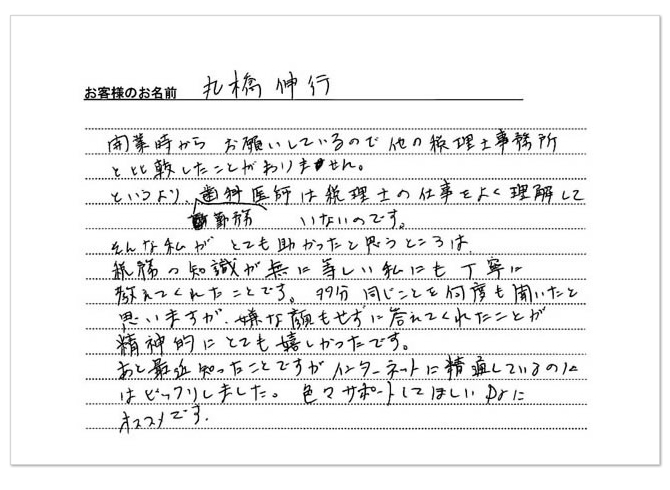 お客様のお名前 丸橋伸行
開業時から お願いしているので他の税理士事務所
と比較したことがありません。
というより、歯科医師は税理士の仕事をよく理解して
勤務 いないのです。
そんな私が とても助かったと思うところは
税務の知識が無に等しい私にも丁寧に
教えてくれたことです。多分 同じことを何度も聞いたと
思いますが、嫌な顔もせずに答えてくれたことが
精神的にとても嬉しかったです。
あと最近知ったことですがインターネットに精通しているのに
はビックリしました。 色々サポートしてほしい Drに
オススメです.